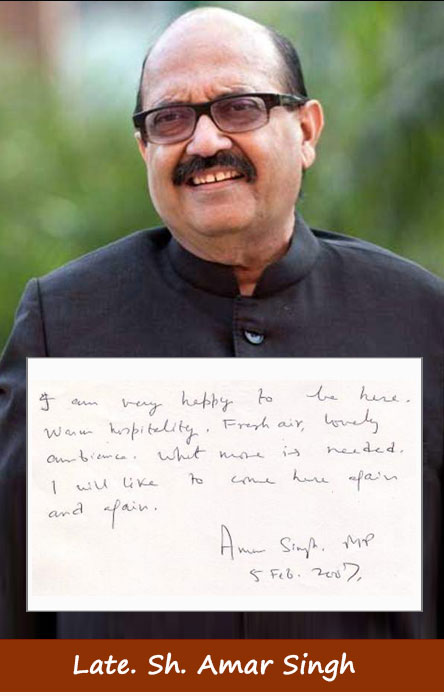 I am very happy to be here.
Warm hospitality. Fresh air, lovely
ambience. What more is needed.
I will like to come here again
and again.
Amar Singh. MP
5 Feb. 2007.
Late. Sh. Amar Singh